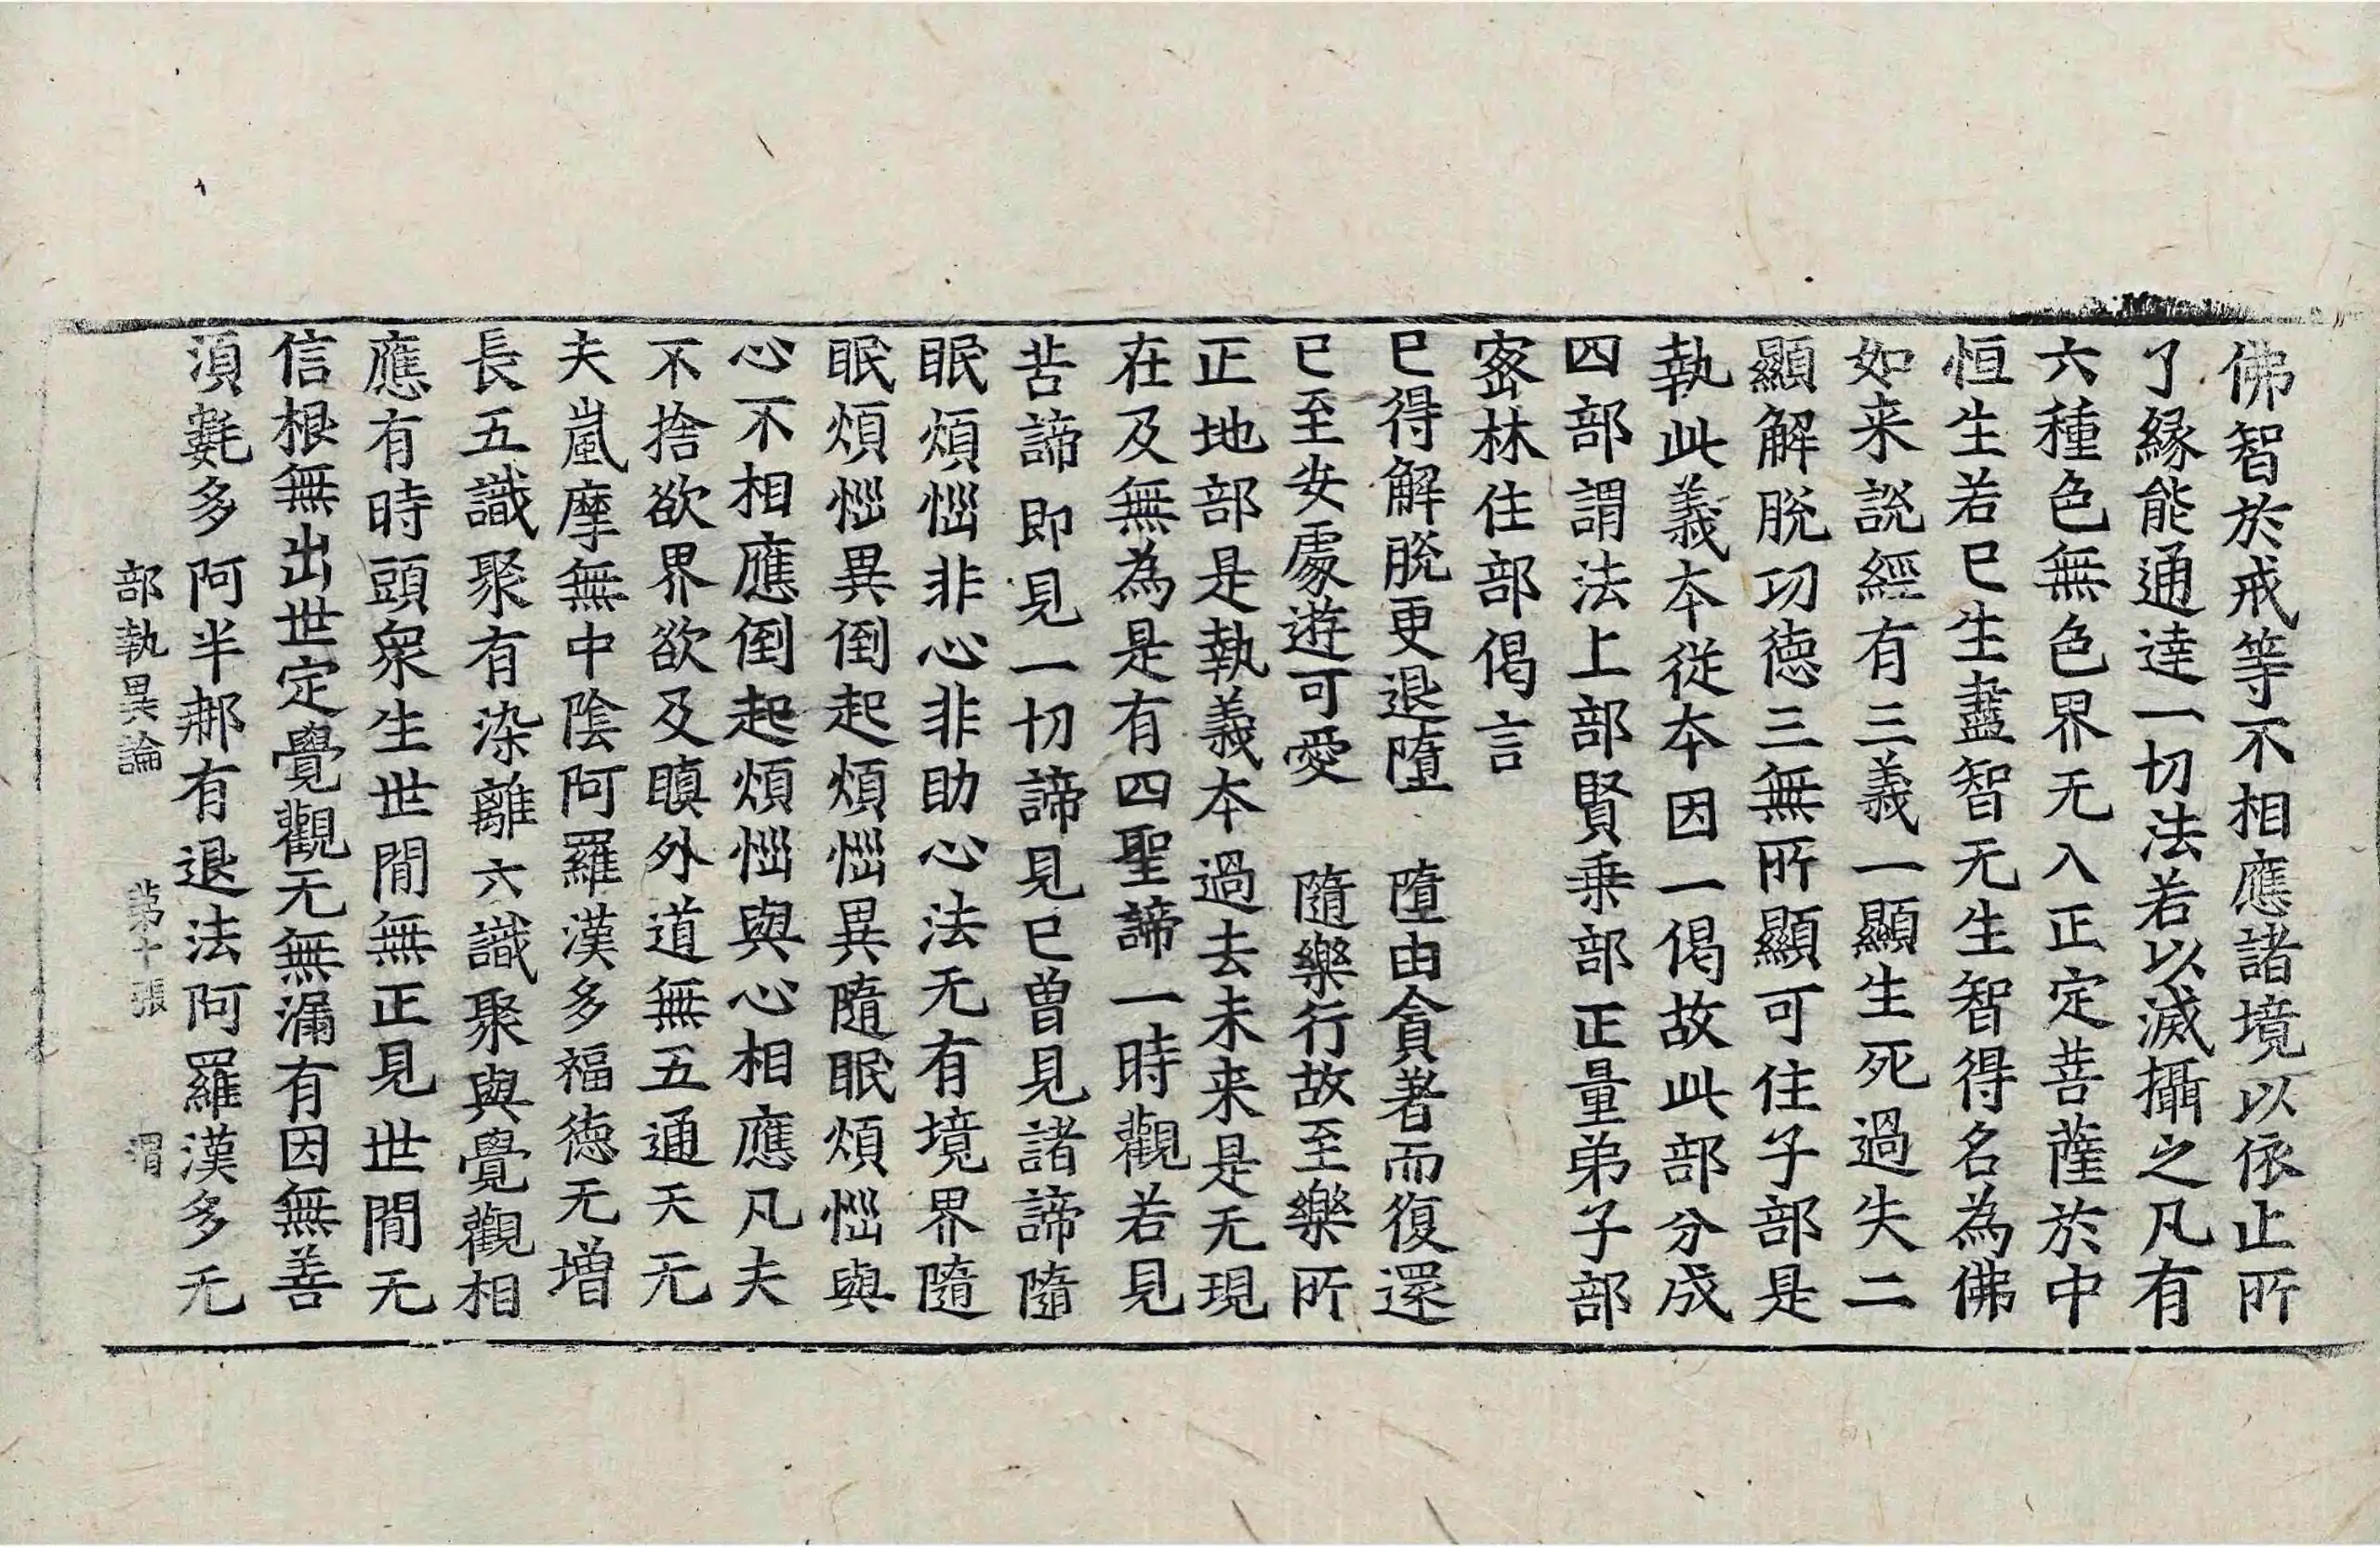 佛智於戒等不相應諸境以依止所
了緣能通達一切法若以滅攝之凡有
六種色無色界无入正定菩薩於中
恒生若已生盡智无生智得名為佛
如来說經有三義一顯生死過失二
顯解脫功德三無所顯可住子部是
執此義本從本因一偈故此部分成
四部謂法上部賢乗部正量弟子部
密林住部偈言
已得解脫更退墮　墮由貪著而復還
已至安處遊可愛　隨樂行故至樂所
正地部是執義本過去未来是无現
在及無為是有四聖諦一時觀若見
苦諦即見一切諦見已曾見諸諦隨
眠煩惱非心非助心法无有境界隨
眠煩惱異倒起煩惱異隨眠煩惱與
心不相應倒起煩惱與心相應凡夫
不捨欲界欲及瞋外道無五通天无
夫嵐摩無中陰阿羅漢多福德无增
長五識聚有染離六識聚與覺觀相
應有時頭衆生世間無正見世間无
信根無出世定覺觀无無漏有因無善
湏㲲多阿半那有退法阿羅漢多无
部執異論　第十張　渭